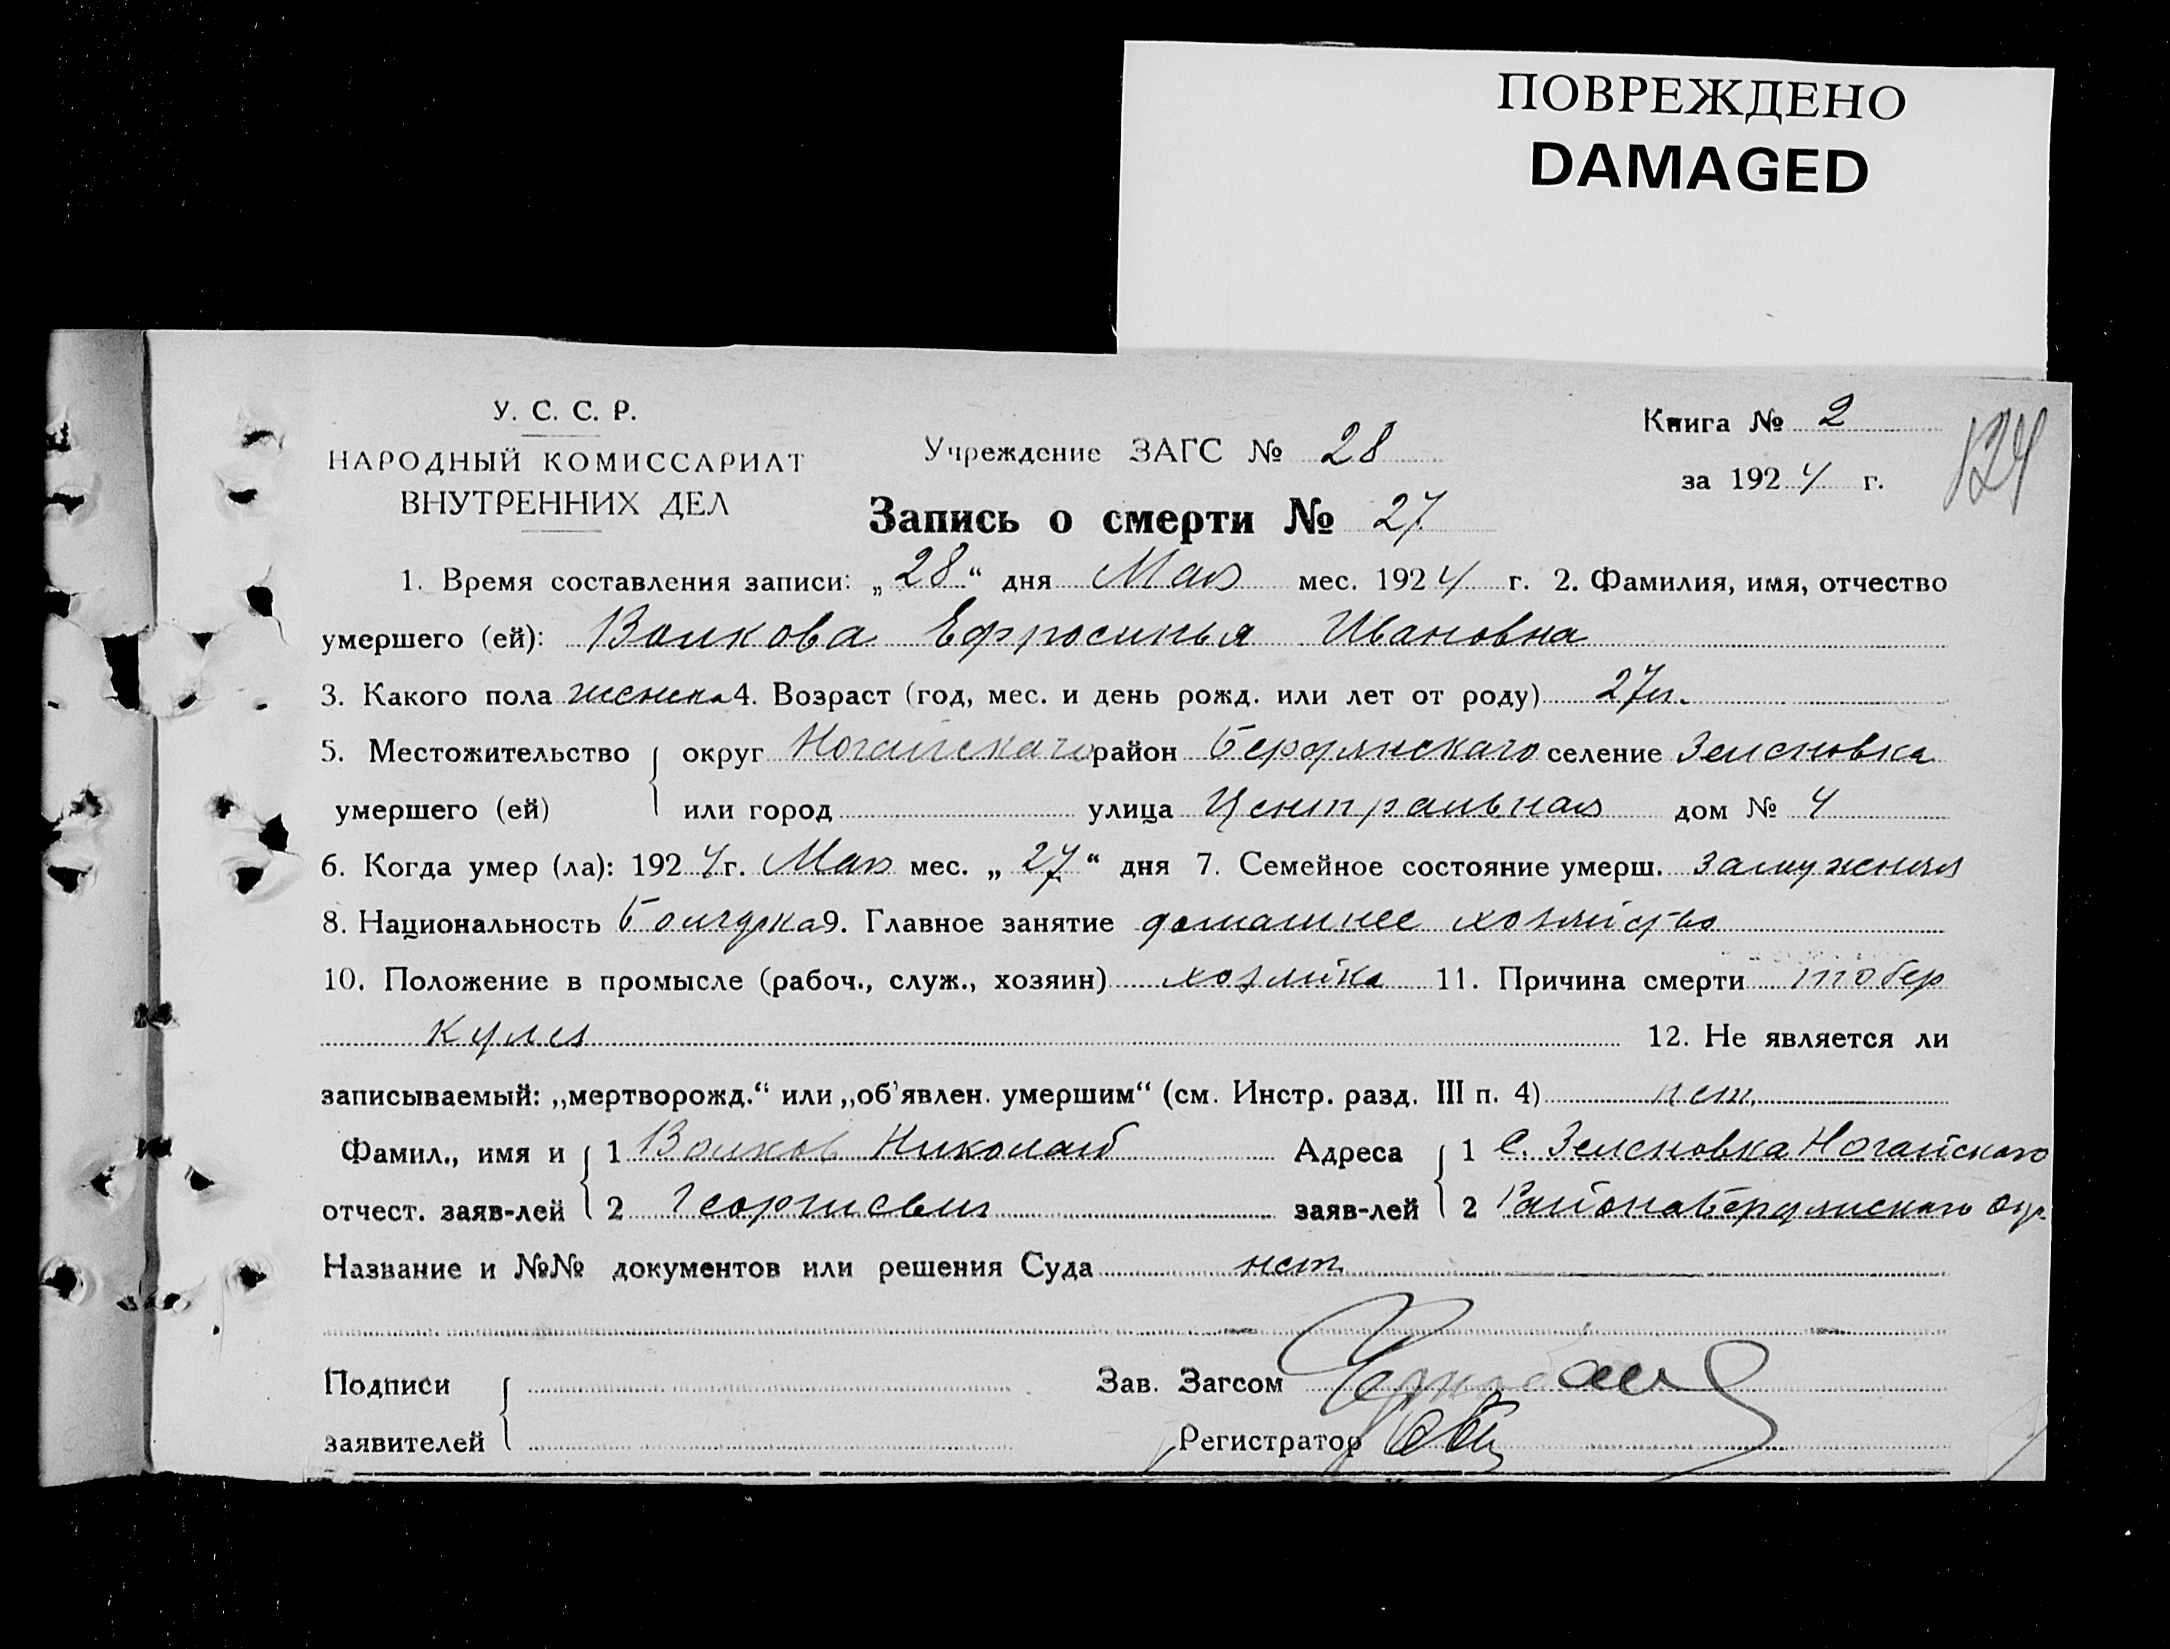 ПОВРЕЖДЕНО
DAMAGED
У. С. С. Р.
НАРОДНЫЙ КОМИССАРИАТ
ВНУТРЕННИХ ДЕЛ
Учреждение ЗАГС № 28
Книга № 2
за 1924 г.
124
Запись о смерти № 27
1. Время составления записи: „28“ дня Мая мес. 1924 г. 2. Фамилия, имя, отчество
умершего (ей): Волкова Ефросинья Ивановна
3. Какого пола женска 4. Возраст (год, мес. и день рожд. или лет от роду) 27 л.
5. Местожительство умершего (ей) { округ Ногайскаго район Бердянскаго селение Зеленовка
или город улица Центральная дом № 4
6. Когда умер (ла): 1924 г. Мая мес. „27“ дня 7. Семейное состояние умерш. замужняя
8. Национальность Болгарка 9. Главное занятие домашнее хозяйство
10. Положение в промысле (рабоч., служ., хозяин) хозяйка 11. Причина смерти тобер
кулез 12. Не является ли
записываемый: „мертворожд.“ или „об'явлен. умершим“ (см. Инстр. разд. III п. 4) нет
Фамил., имя и отчест. заяв-лей { 1 Волков Николай Адреса заяв-лей { 1 С. Зеленовка Ногайского
2 Георгиевич 2 Района Бердянского окр.
Название и №№ документов или решения Суда нет
Подписи заявителей {
Зав. Загсом
Регистратор